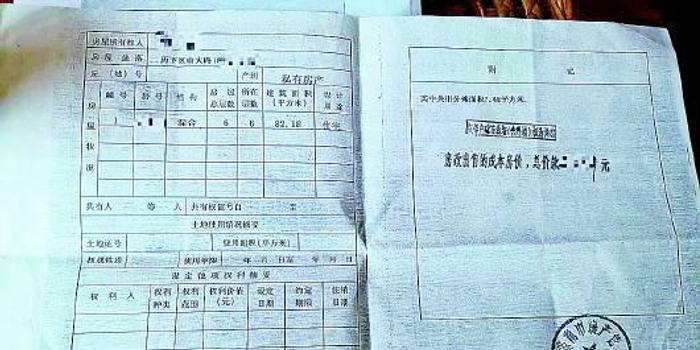 房屋所有权人
房屋坐落 历下区山大路
丘(地)号 产别 私有房产
房屋状况 幢号 房号 结构 房屋总层数 所在层数 建筑面积(平方米) 设计用途
混合 6 6 82.18 住宅
共有人 等 人 共有权证号自 至
土地使用情况摘要
土地证号 使用面积(平方米)
权属性质 使用年限 年 月 日至 年 月 日
设定他项权利摘要
权利人 权利种类 权利范围 权利价值(元) 设定日期 约定期限 注销日期
附 记
其中共用分摊面积 平方米
房改出售的成本房价,总价款 元